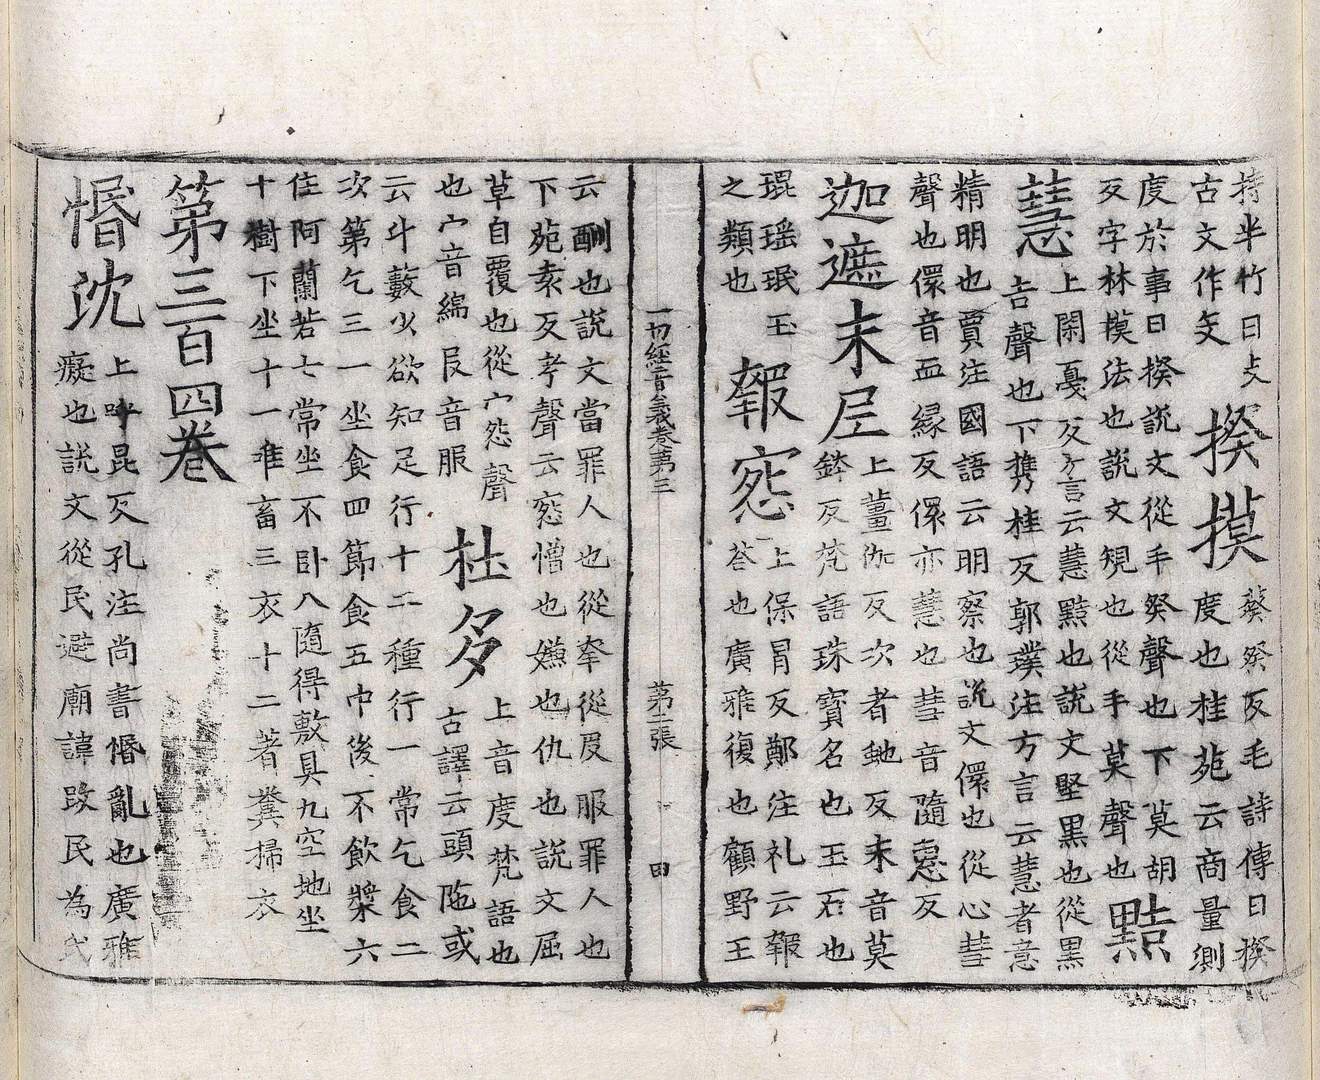 持半竹曰攴
古文作𢺵
揆摸
葵癸反毛詩傳曰揆
度也桂苑云商量測
度於事曰揆說文從手癸聲也下莫胡
反字林摸法也說文規也從手莫聲也
黠
慧
上閑戛反方言云慧黠也說文堅黑也從黑
吉聲也下攜桂反郭璞注方言云慧者意
精明也賈注國語云明察也說文儇也從心彗
聲也儇音血緣反儇亦慧也彗音隨恚反
迦遮末尼
上薑伽反次者虵反末音莫
鉢反梵語珠寶名也玉石也
琨瑤珉玉
之類也
報𢘍
上保冒反鄭注礼云報
荅也廣雅復也顧野王
一切經音義卷第三 第二張 田
云酬也說文當罪人也從㚔從𠬝服罪人也
下苑袁反考聲云𢘍憎也嫌也仇也說文屈
草自覆也從宀怨聲
也宀音綿𠬝音服
杜多
上音度梵語也
古譯云頭陁或
云斗藪少欲知足行十二種行一常乞食二
次第乞三一坐食四節食五中後不飲漿六
住阿蘭若七常坐不卧八隨得敷具九空地坐
十樹下坐十一唯畜三衣十二著糞掃衣
第三百四卷
惛沈
上呼昆反孔注尚書惛亂也廣雅
癡也說文從民避廟諱改民為氏